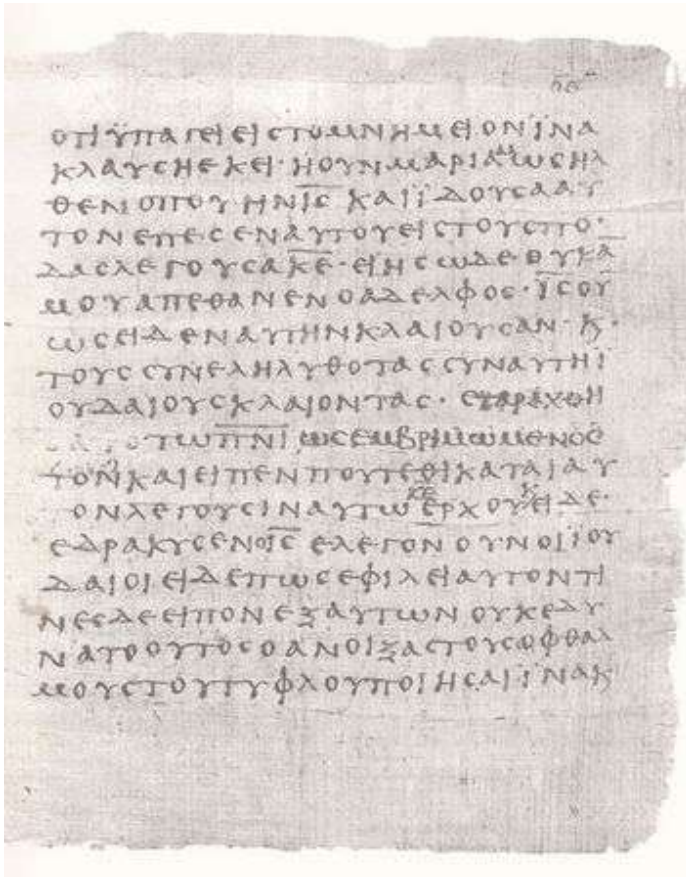 οτι ϋπαγει εις το μνημειον ϊνα
κλαυση εκει· η ουν μαριαμ ως ηλ
θεν οπου ην ι̅ς̅ και ϊδουσα αυ
τον επεσεν αυτου εις τους πο·
δας λεγουσα κ̅ε̅· ει ης ωδε· ουκ α̅
μου απεθανεν ο αδελφος· ι̅ς̅ ου̅
ως ειδεν αυτην κλαιουσαν· κ·
τους συνεληλυθοτας συν αυτη ϊ
ουδαιους κλαιοντας· εταραχθη
τω π̅ν̅ι̅ ως εμβριμωμενος
και ειπεν που τεθικαται αυ
τον λεγουσιν αυτω κ̅ε̅ ερχου κ ειδε·
εδρακυσεν ο ι̅ς̅ ελεγον ουν οι ϊου
δαιοι ειδε πως εφιλει αυτον τι
νες δε ειπον εξ αυτων ουκ εδυ
νατο ουτος ο ανοιξας τους οφθαλ
μους του τυφλου ποιησαι ϊνα κ